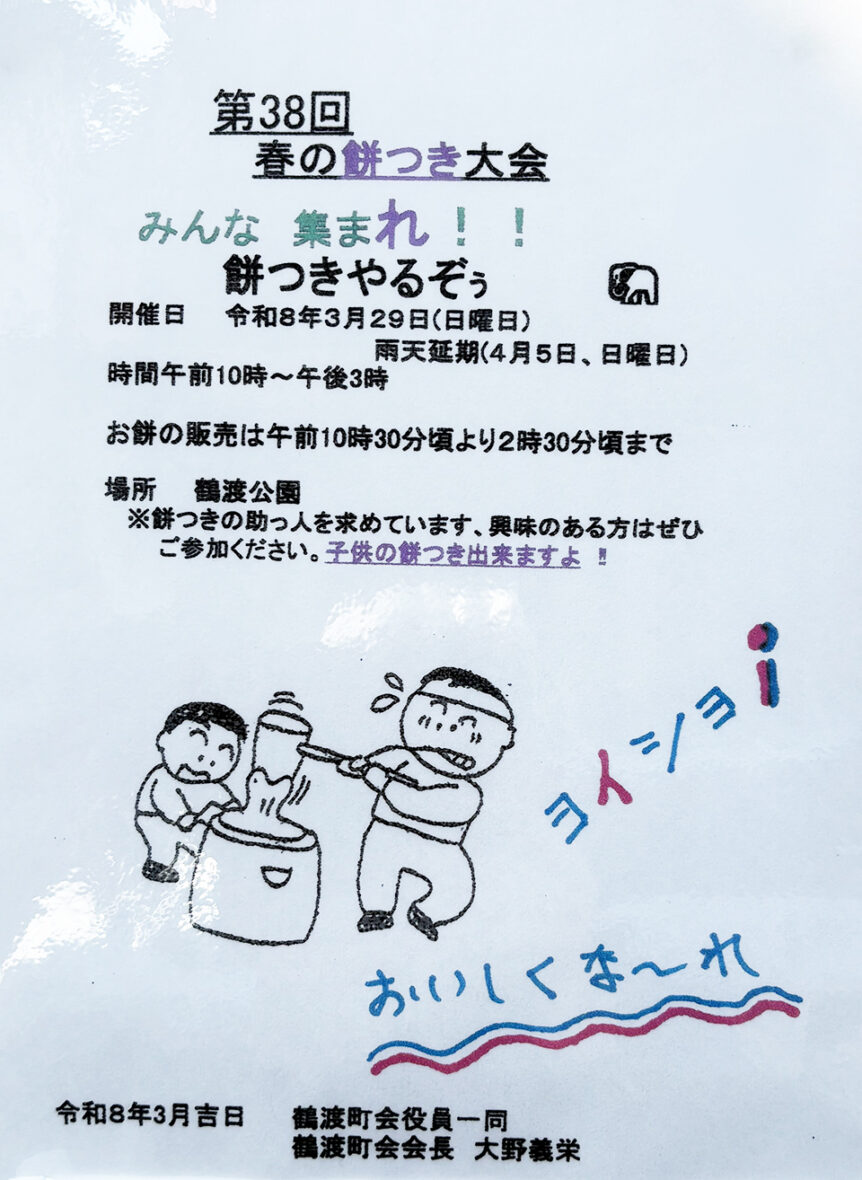 第38回
春の餅つき大会
みんな 集まれ！！
餅つきやるぞぅ
開催日 令和8年3月29日(日曜日)
雨天延期(4月5日、日曜日)
時間午前10時～午後3時
お餅の販売は午前10時30分頃より2時30分頃まで
場所 鶴渡公園
※餅つきの助っ人を求めています、興味のある方はぜひ
ご参加ください。子供の餅つき出来ますよ‼
ヨイショ！
おいしくな～れ
令和8年3月吉日 鶴渡町会役員一同
鶴渡町会会長 大野義栄